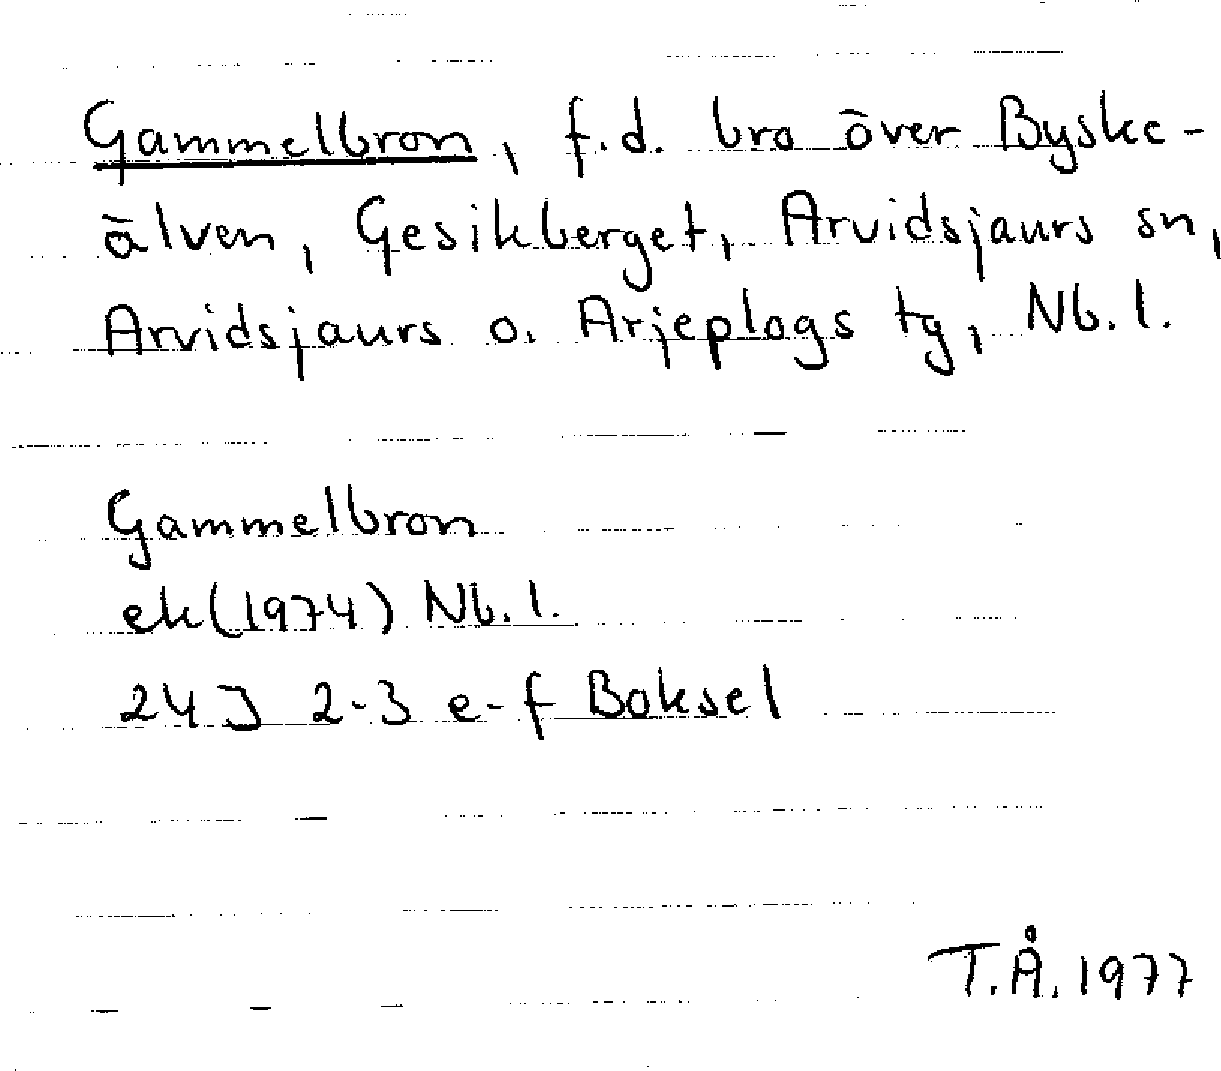 Gammelbron, f.d. bro över Byske-
älven, Gesikberget, Arvidsjaurs sn,
Arvidsjaurs o. Arjeplogs tg, Nb. l.
Gammelbron
ek (1974) Nb. l.
24J 2-3 e-f Boksel
T.Å. 1977